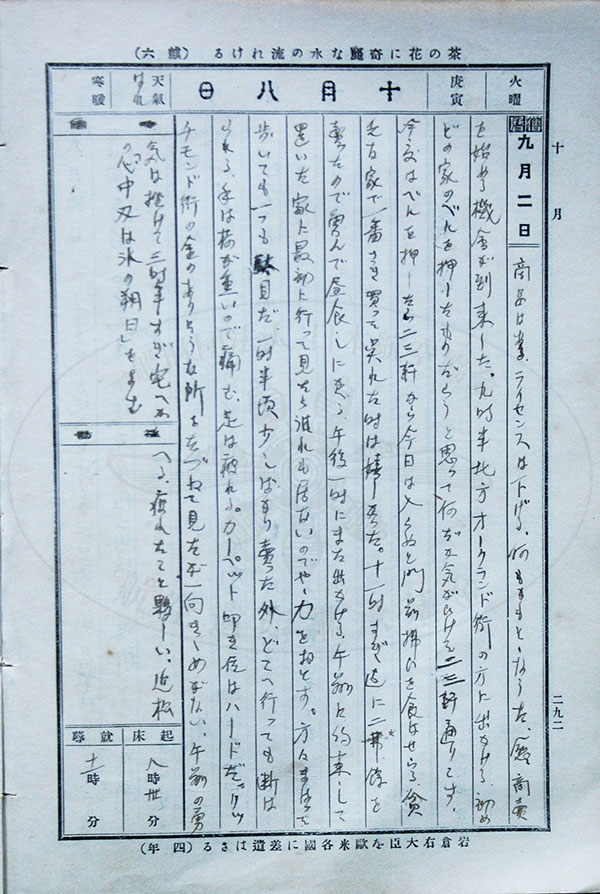 茶の花に奇麗な水の流れける（麒六）
十月
二九二
火曜
庚寅
十月八日
天氣
はれ
寒暖
舊曆 九月二日
商品は来る、ライセンスは下げる、何もまとまとなった、愈商賣
を始める機會が到来した。九時半北方オークランド街の方に出かける、初め
どの家のべんを押したものだらうと思って何だか気がひけて二三軒通りこす、
今度はべんを押したら二三軒から今日は入らぬと門前拂ひを食はせらる、貧
しき家で一番さき買って呉れた時は嬉しかった。十一時すぎ迄に二弗
賣ったので勇んで昼食しに来る、午後一時にまた出かける、午前に約束して
置いた家に最初に行って見たら誰れも居ないのでやゝ力をおとす。方々まはって
歩いても一つも駄目だ、一時半頃少しばかり賣った外、どこへ行っても断は
られる、手は荷が重いので痛む、足は疲れる。カーペット叩き位はハードだ。リッ
チモンド街の金のありそうな所をたづねて見たが一向きゝめがない、午前の勇
気は挫けて三時半すぎ宅へか
へる、疲れたこと夥しい、近松
の「心中又は氷の朔日」をよむ
起床 八時卅分
就蓐 十一時 分
岩倉右大臣を歐米各國に差遣はさる（四年）